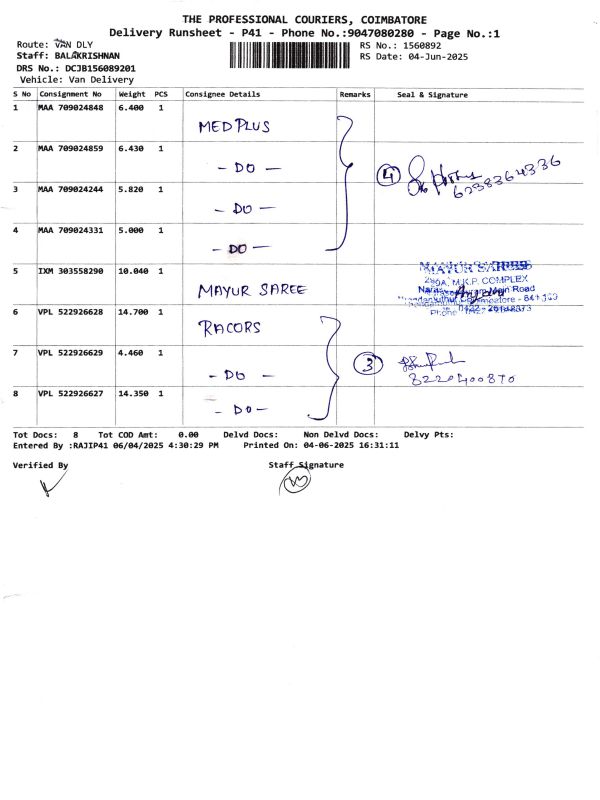 THE PROFESSIONAL COURIERS, COIMBATORE
Delivery Runsheet - P41 - Phone No.:9047080280 - Page No.:1
Route: VAN DLY
RS No.: 1560892
Staff: BALAKRISHNAN
RS Date: 04-Jun-2025
DRS No.: DCJB156089201
Vehicle: Van Delivery
S No Consignment No Weight PCS Consignee Details Remarks Seal & Signature
1 MAA 709024848 6.400 1 MEDPLUS
2 MAA 709024859 6.430 1 - DO -
4
6238364336
3 MAA 709024244 5.820 1 - DO -
4 MAA 709024331 5.000 1 - DO -
5 IXM 303558290 10.040 1 MAYUR SAREE
MAYUR SAREES
M.K.P. COMPLEX
Main Road
6 VPL 522926628 14.700 1 RACORS
7 VPL 522926629 4.460 1 - DO -
3
8220400870
8 VPL 522926627 14.350 1 - DO -
Tot Docs: 8 Tot COD Amt: 0.00 Delvd Docs: Non Delvd Docs: Delvy Pts:
Entered By :RAJIP41 06/04/2025 4:30:29 PM Printed On: 04-06-2025 16:31:11
Verified By Staff Signature